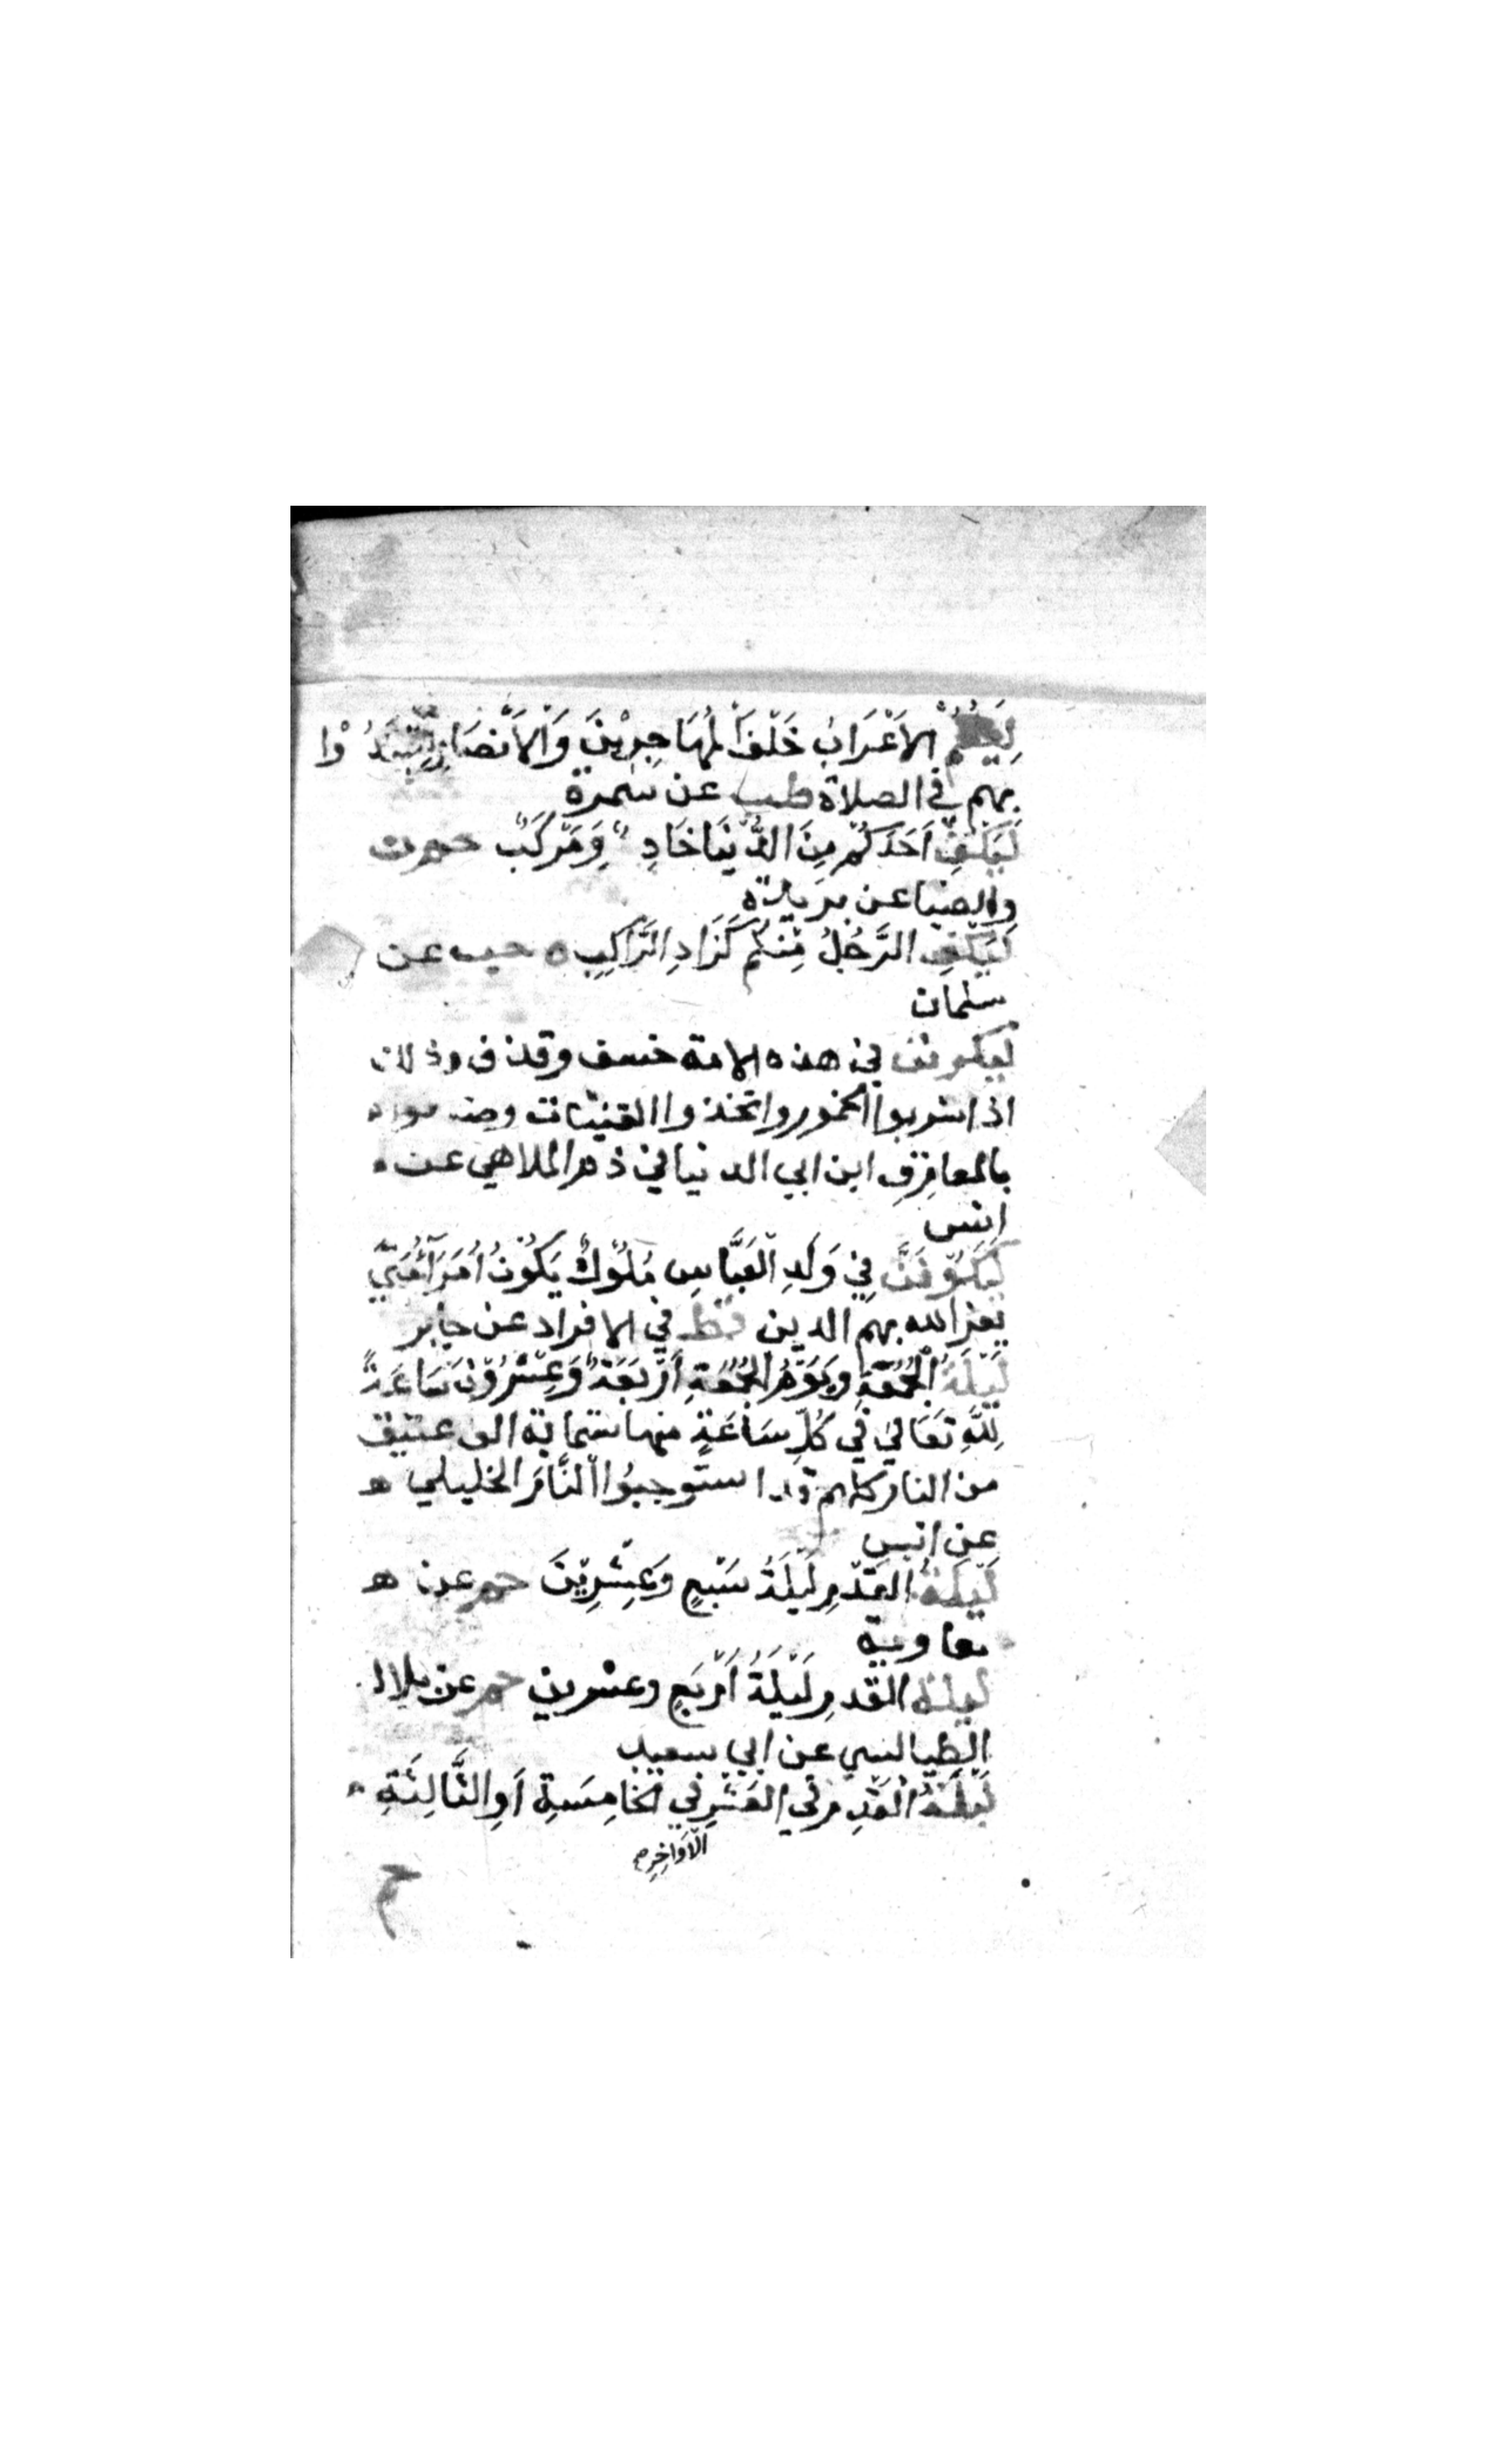 لِيَقُمِ الأَعْرَابُ خَلْفَ الْمُهَاجِرِيْنَ وَالأَنْصَارِ لِيَقْتَدُوْا
بهم في الصلاة طب عن سمرة
لِيَكْفِ أَحَدَكُمْ مِنَ الدُّنْيَا خَادِمٌ وَمَرْكَبٌ حم ن
والضيا عن بريدة
لِيَكْفِ الرَّجُلَ مِنْكُمْ كَزَادِ الرَّاكِبِ ه حب عن
سلمان
ليكونن في هذه الامة خسف وقذف وذلك
اذا شربوا الخمور واتخذوا القينات وضربوا
بالمعازف ابن ابي الدنيا في ذم الملاهي عن
انس
لَيَكُوْنَنَّ فِي وَلَدِ الْعَبَّاسِ مُلُوْكٌ يَكُوْنُ أُمَرَآءُ أُمَّتِي
يعز الله بهم الدين قط في الافراد عن جابر
لَيْلَةُ الْجُمُعَةِ وَيَوْمُ الْجُمُعَةِ أَرْبَعَةٌ وَعِشْرُوْنَ سَاعَةً
لِلّٰهِ تَعَالٰى فِي كُلِّ سَاعَةٍ منها ستماية الف عتيق
من النار كلهم قد استوجبُوا النَّارَ الخليلي
عن انس
لَيْلَةُ الْقَدْرِ لَيْلَةُ سَبْعٍ وَعِشْرِيْنَ حم عن
معاوية
ليلة القدر لَيْلَةُ أَرْبَعٍ وعشرين حم عن بلال
الطيالسي عن ابي سعيد
لَيْلَةُ الْقَدْرِ في الْعَشْرِ فِي الْخَامِسَةِ أَوِ الثَّالِثَةِ
الْأَوَاخِرِ